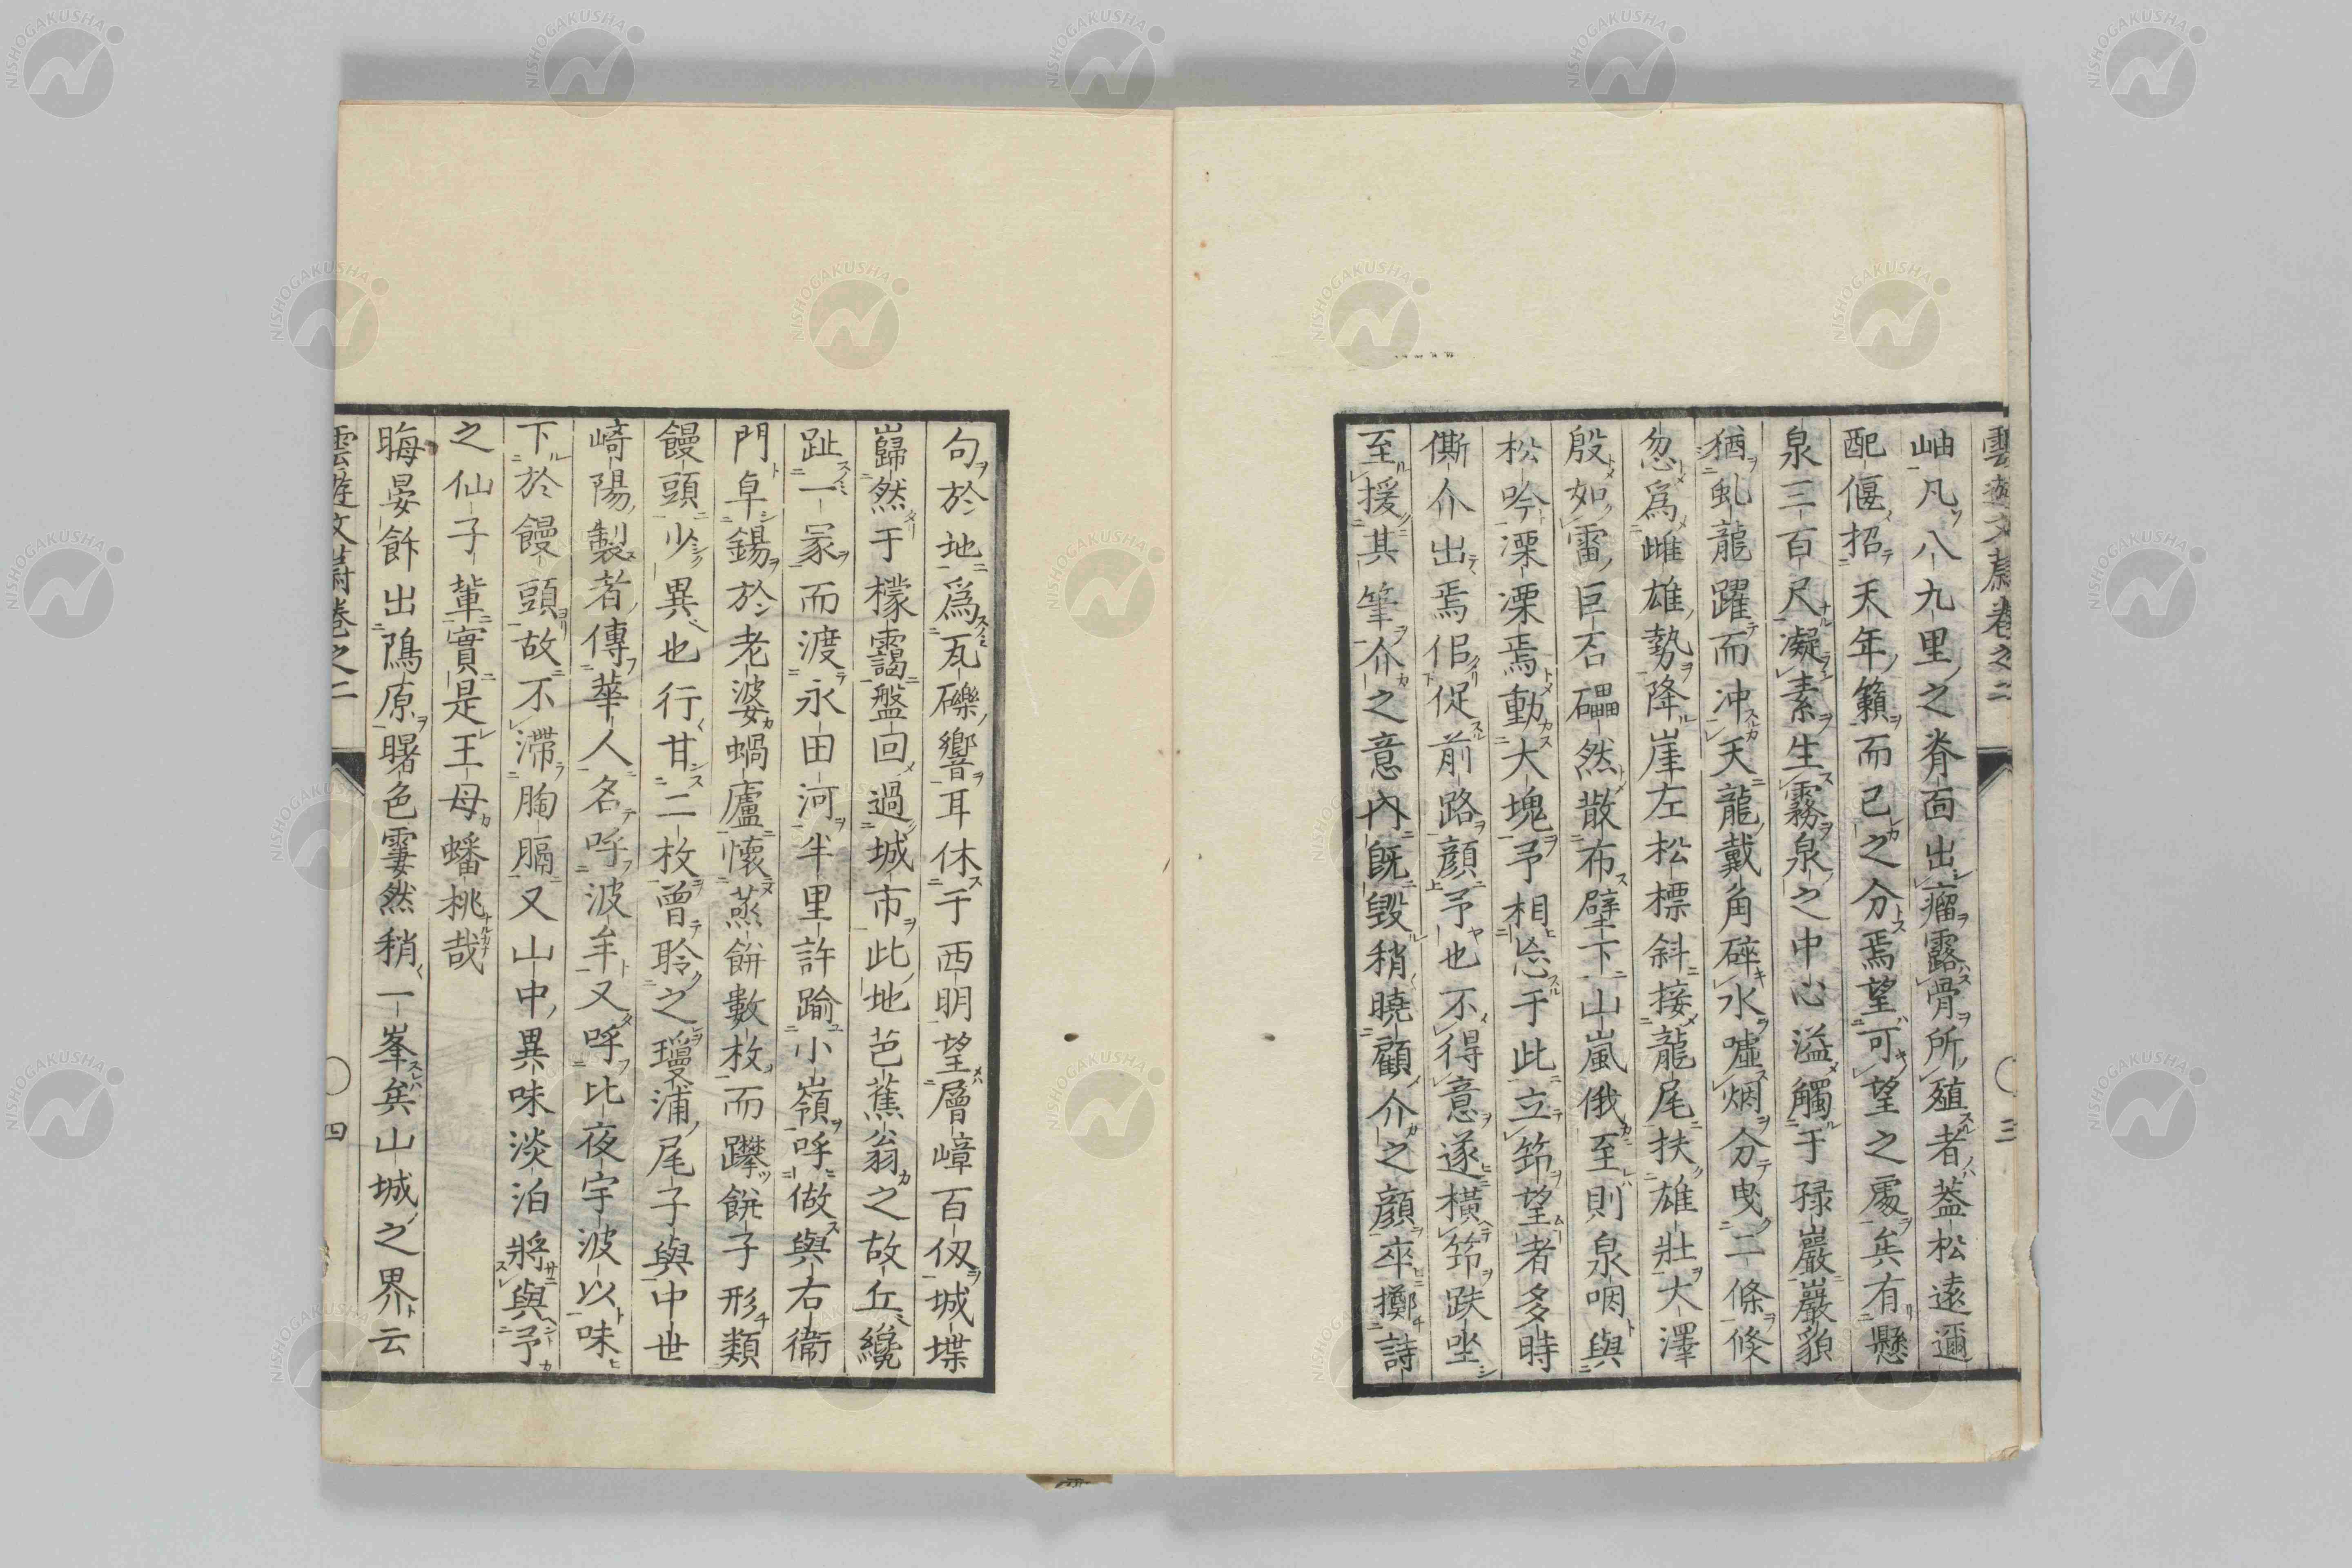 雲遊文蔚卷之二 三
岫凡八九里之脊面出瘤露骨所殖者葢松遠邇
配偃招天年籟而已之分焉望可望之處矣有懸
泉三百尺凝素生霧泉之中心溢觸于孱巖巖貌
猶虬龍躍而冲天龍戴角碎水噓烟分曳二條條
忽爲雌雄勢降崖左松標斜接龍尾扶雄壯大澤
殷如雷巨石礧然散布壁下山嵐俄至則泉咽與
松吟凓凓焉動大塊予相忘于此立筇望者多時
僊介出焉佀促前路顔予也不得意遂橫筇趺坐
至援其筆介之意內既毀稍曉顧介之顔卒擲詩
句於地爲瓦礫響耳休于西明望層嶂百仭城堞
巋然于檬靄盤回過城市此地芭蕉翁之故丘纔
趾一冢而渡永田河半里許踰小嶺呼做與右衞
門卓錫於老婆蝸廬懷蒸餠數枚而躒餠子形類
饅頭少異也行甘二枚曾聆之瓊浦尾子與中世
崎陽製者傳華人名呼波牟又呼比夜宇波以味
下於饅頭故不滯胸膈又山中異味淡泊將與予
之仙子輩實是王母蟠桃哉
晦晏餙出隝原曙色霋然稍一峯矣山城之界云
雲遊文蔚卷之二 四
NISHOGAKUSHA